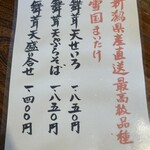 新潟県産直送最高級品種
雪国まいたけ
舞茸天せいろ 一八五〇円
舞茸天ぷらそば 一八五〇円
舞茸天盛り合せ 一四〇〇円